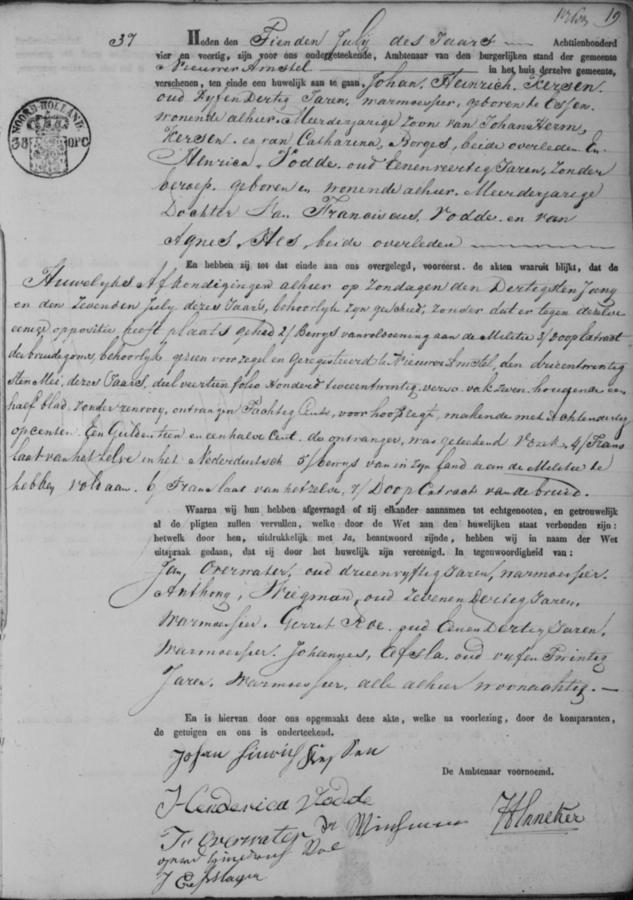 19
37 Heden den Tienden July des Jaars Achttienhonderd
vier en veertig, zijn voor ons ondergeteekende, Ambtenaar van den burgerlijken stand der gemeente
Nieuwer Amstel in het huis derzelve gemeente,
verschenen, ten einde een huwelijk aan te gaan, Johan, Heinrich, Kersen
oud Vyfen Dertig Jaren, warmoesier, geboren te Essen
wonende alhier. Meerderjarige zoon van Johan Herm,
Kersen. en van Catharina, Borges, beide overleden. En
NOORD-HOLLAND
38 OPC
Henrica, Vodde. oud Eenenveertig Jaren, Zonder
beroep. geboren en wonende alhier. Meerderjarige
Dochter Van Franciscus, Vodde. en van
Agnes, Hes, beide overleden
En hebben zij tot dat einde aan ons overgelegd, vooreerst. de akten waaruit blijkt, dat de
Huwelyks Afkondigingen alhier op Zondagen den Dertigsten Juny
en den Zevenden July dezes Jaars, behoorlyk Zyn geschied, zonder dat er tegen dezelve
eenige oppositie heeft plaats gehad 2/ Bewys van voldoening aan de Militie 3/ Doop Extract
des bruidegoms, behoorlyk voor zegel en Geregistreerd te Nieuwer Amstel, den drieentwintig
sten Mei, dezes Jaars, deel veertien folio Honderd tweeentwintig verso vak zeven. houdende een
half blad, zonder renvooy, ontvangen Tachtig Cents, voor hoofdregt, makende met Achtendertig
opcenten. Een Gulden tien en een halve Cent. de ontvanger, was geteekend 4/ Trans
laat van het zelve in het Nederduitsch 5/ Bewys van in Zyn land aan de Militie te
hebben voldaan. 6/ Translaat van hetzelve, 7/ Doop Extract van de bruid.
Waarna wij hun hebben afgevraagd of zij elkander aannamen tot echtgenooten, en getrouwelijk
al de pligten zullen vervullen, welke door de Wet aan den huwelijken staat verbonden zijn:
hetwelk door hen, uitdrukkelijk met Ja, beantwoord zijnde, hebben wij in naam der Wet
uitspraak gedaan, dat zij door het huwelijk zijn vereenigd. In tegenwoordigheid van:
Jan, Overwater, oud drieenvyftig Jaren, warmoesier.
Anthony, Wiegman, oud Zevenen Dertig Jaren,
Warmoesier. Gerret Roe. oud Eenen Dertig Jaren,
Warmoesier. Johannes, oud vyfen Twintig
Jaren, Warmoesier, alle alhier woonachtig.
En is hiervan door ons opgemaakt deze akte, welke na voorlezing, door de komparanten,
de getuigen en ons is onderteekend.
Johan
De Ambtenaar voornoemd.
Henderica Vodde
Overwater